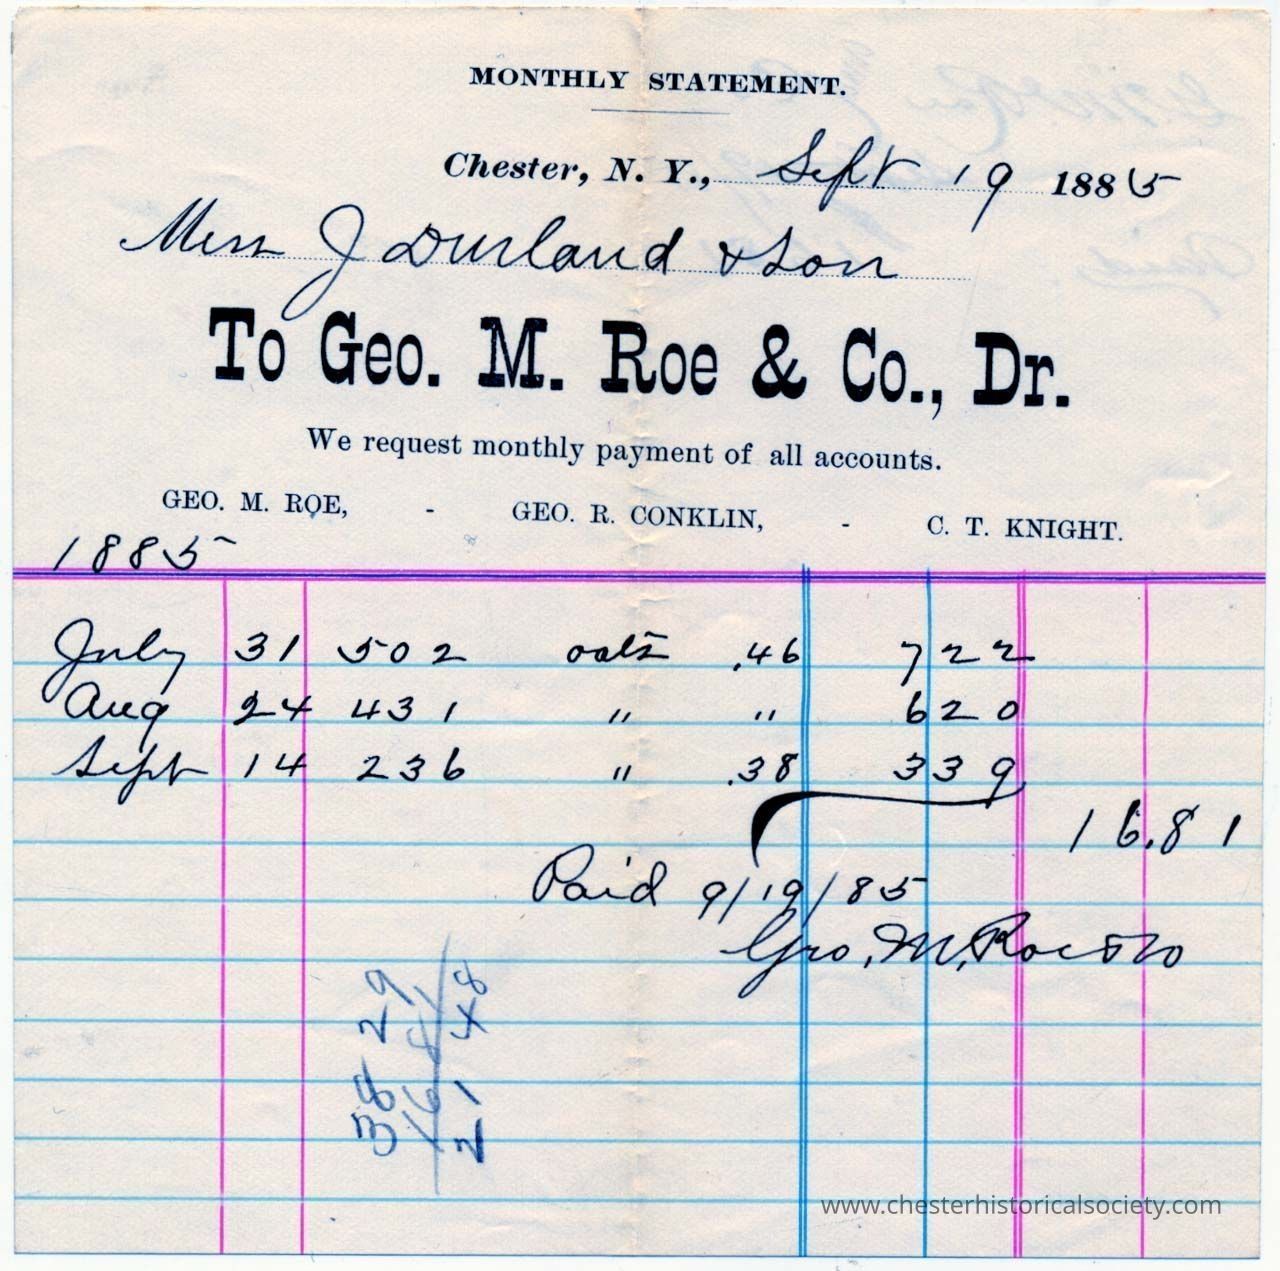 MONTHLY STATEMENT.
Chester, N. Y., Sept 19 1885
Mess J Durland & Son
To Geo. M. Roe & Co., Dr.
We request monthly payment of all accounts.
GEO. M. ROE, - GEO. R. CONKLIN, - C. T. KNIGHT.
1885
July 31 502 oats .46 7 22
Aug 24 431 " " 6 20
Sept 14 236 " .38 3 39
16.81
Paid 9/19/85
Geo. M. Roe & Co
www.chesterhistoricalsociety.com